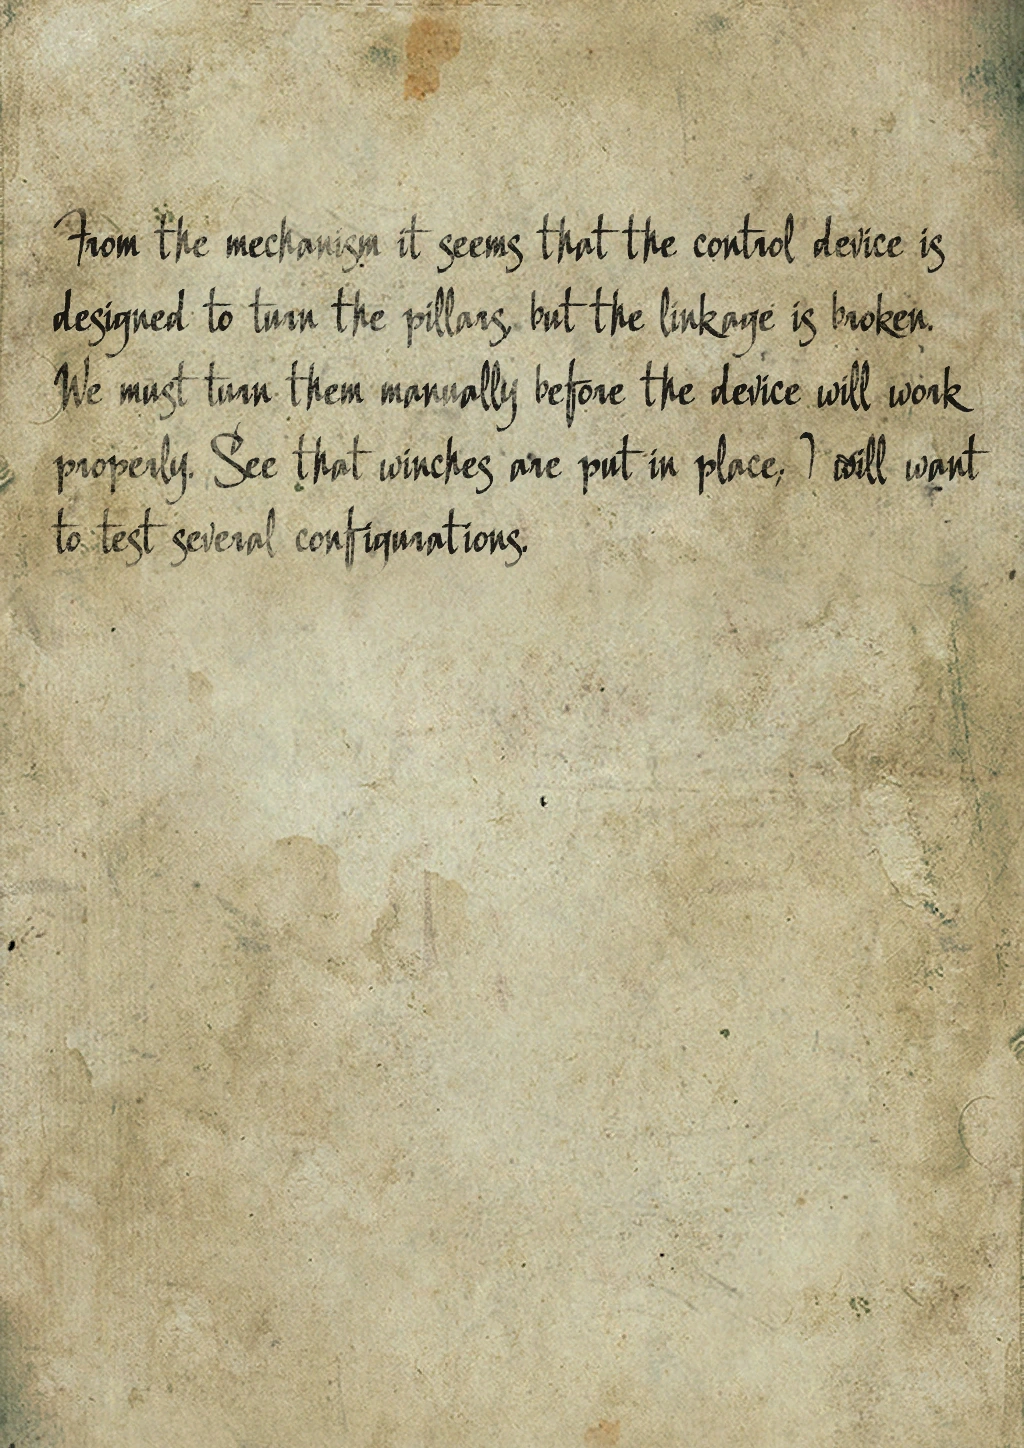 From the mechanism it seems that the control device is
designed to turn the pillars, but the linkage is broken.
We must turn them manually before the device will work
properly. See that winches are put in place; I will want
to test several configurations.